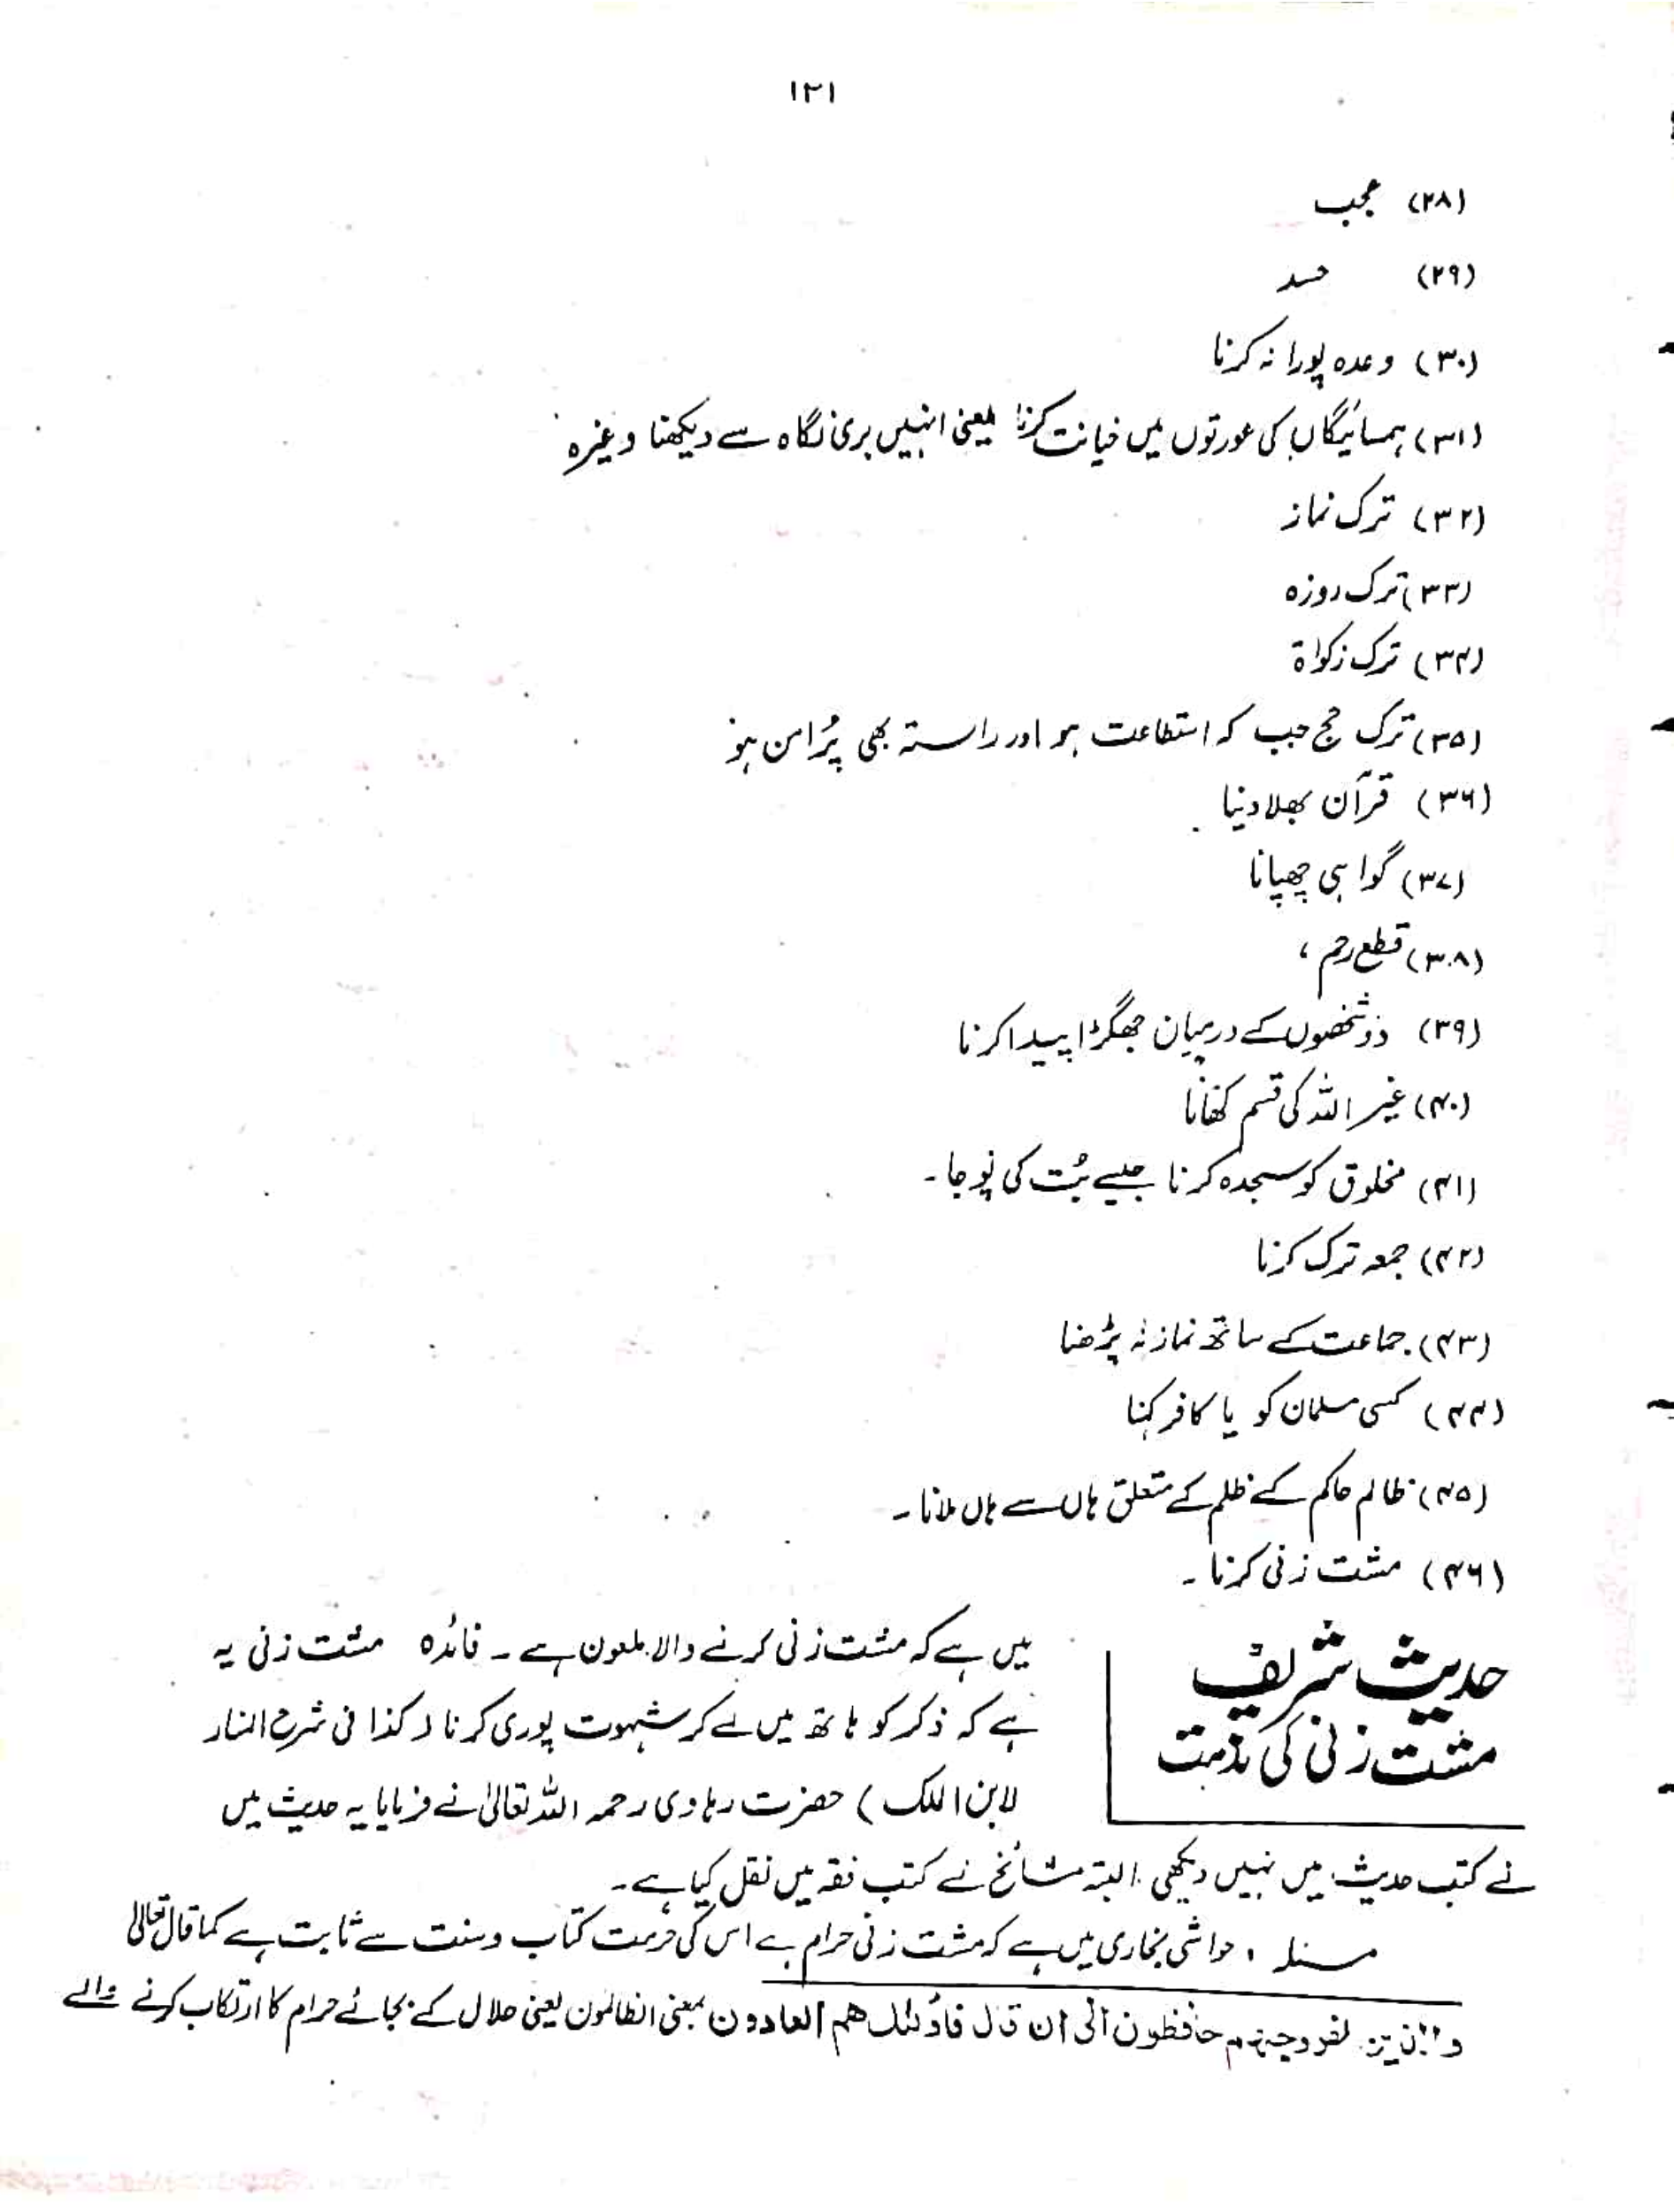 ۱۲۱
(۲۸) عجب
(۲۹) حسد
(۳۰) وعدہ پورا نہ کرنا
(۳۱) ہمسائیگاں کی عورتوں میں خیانت کرنا یعنی انہیں بری نگاہ سے دیکھنا وغیرہ
(۳۲) ترک نماز
(۳۳) ترک روزہ
(۳۴) ترک زکواۃ
(۳۵) ترک حج جب کہ استطاعت ہو اور راستہ بھی پُرامن ہو
(۳۶) قرآن بھلا دینا
(۳۷) گواہی چھپانا
(۳۸) قطع رحم،
(۳۹) دو شخصوں کے درمیان جھگڑا پیدا کرنا
(۴۰) غیر اللہ کی قسم کھانا
(۴۱) مخلوق کو سجدہ کرنا جیسے بُت کی پوجا۔
(۴۲) جمعہ ترک کرنا
(۴۳) جماعت کے ساتھ نماز نہ پڑھنا
(۴۴) کسی مسلمان کو یا کافر کہنا
(۴۵) ظالم حاکم کے ظلم کے متعلق ہاں سے ہاں ملانا۔
(۴۶) مشت زنی کرنا۔
حدیث شریف
مشت زنی کی مذمت
میں ہے کہ مشت زنی کرنے والا ملعون ہے۔ فائدہ مشت زنی یہ
ہے کہ ذکر کو ہاتھ میں لے کر شہوت پوری کرنا (کذا فی شرح المنار
لابن الملک) حضرت رہاوی رحمہ اللہ تعالیٰ نے فرمایا یہ حدیث میں
نے کتب حدیث میں نہیں دیکھی البتہ مشائخ نے کتب فقہ میں نقل کیا ہے۔
مسئلہ، حواشی بخاری میں ہے کہ مشت زنی حرام ہے اس کی حرمت کتاب و سنت سے ثابت ہے کما قال تعالیٰ
والذین لفروجہم حافظون الی ان قال فاولئک ھم العادون بمعنی الظالمون یعنی حلال کے بجائے حرام کا ارتکاب کرنے والے